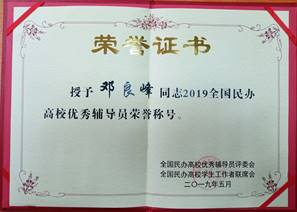 荣誉证书
授予 邓良峰 同志2019全国民办
高校优秀辅导员荣誉称号。
全国民办高校优秀辅导员评委会
全国民办高校学生工作者联席会
二〇一九年五月